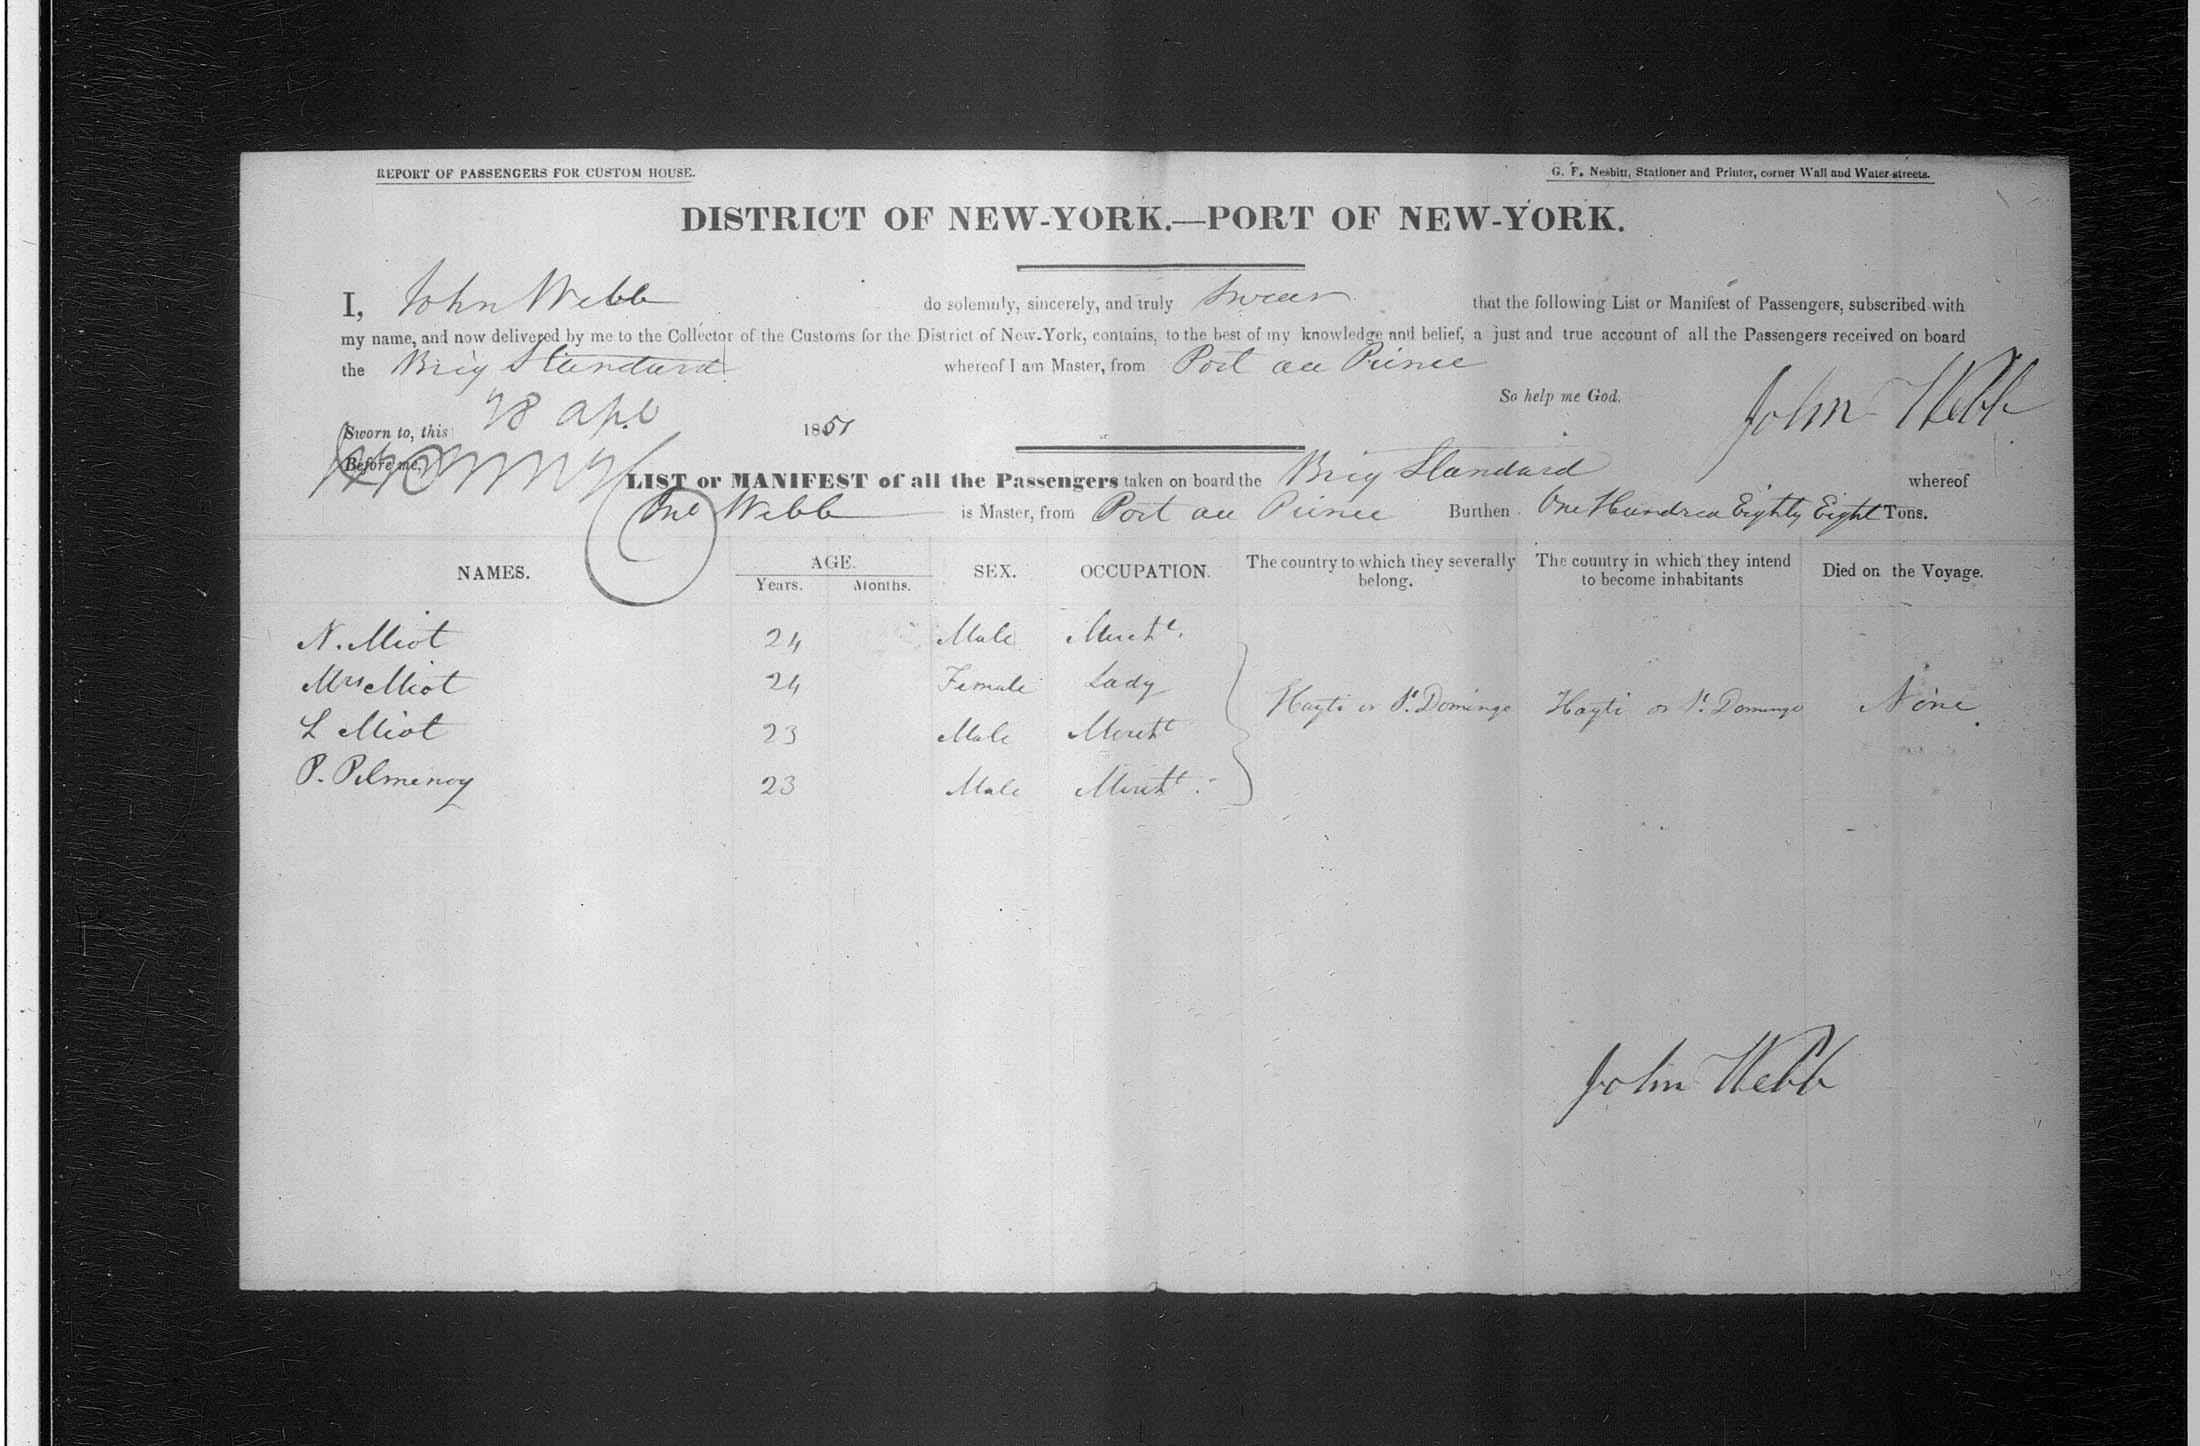 REPORT OF PASSENGERS FOR CUSTOM HOUSE.
G. F. Nesbitt, Stationer and Printer, corner Wall and Water-streets.
DISTRICT OF NEW-YORK.—PORT OF NEW-YORK.
I, John Webb do solemnly, sincerely, and truly swear that the following List or Manifest of Passengers, subscribed with
my name, and now delivered by me to the Collector of the Customs for the District of New-York, contains, to the best of my knowledge and belief, a just and true account of all the Passengers received on board
the Brig Standard whereof I am Master, from Port au Prince
So help me God. John Webb
Sworn to, this 28 Apl 1851
Before me,
LIST or MANIFEST of all the Passengers taken on board the Brig Standard whereof
Jno Webb is Master, from Port au Prince Burthen One Hundred Eighty Eight Tons.
NAMES. AGE. Years. Months. SEX. OCCUPATION. The country to which they severally belong. The country in which they intend to become inhabitants Died on the Voyage.
N. Miot 24 Male Mercht.
Mrs Miot 24 Female Lady
Hayti or St. Domingo Hayti or St. Domingo None
L Miot 23 Male Mercht
P. 23 Male Mercht.
John Webb